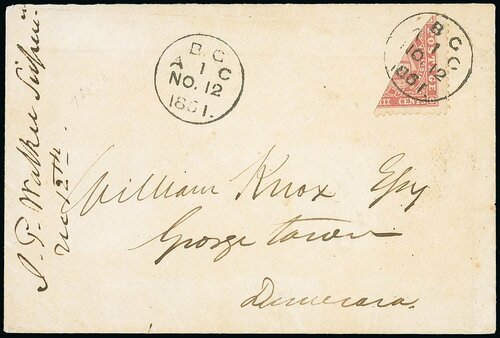 J. T. Walker
Nov 12th
B. G
A 1 C
NO. 12
1861.
B G
1
NO 12
1861.
POSTAGE
III CENTS
William Knox Esq
George town
Demerara